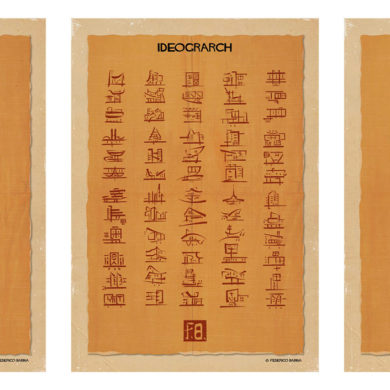 IDEOGRARCH
f.a.
© FEDERICO BABINA
FEDERICO BABINA